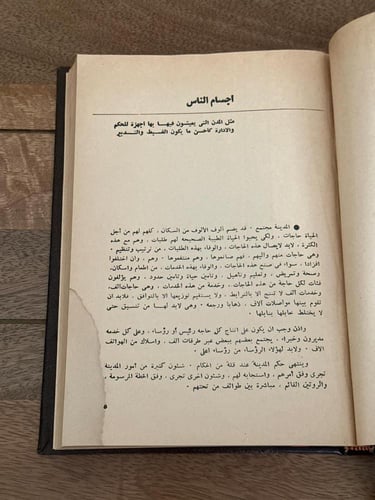 اجسام الناس
مثل المدن التى يعيشون فيها بها أجهزة للحكم
والادارة كأحسن ما يكون الضبط والتدبير
● المدينة مجتمع . قد يضم الوف الألوف من السكان ، كلهم لهم من أجل
الحياة حاجات ، ولكى يحيوا الحياة الطيبة الصحيحة لهم طلبات ، وهم مع هذه
الكثرة ، لابد لايصال هذه الحاجات ، والوفاء بهذه الطلبات ، من ترتيب وتنظيم .
وهى حاجات منهم واليهم . فهم صانعوها ، وهم منتفعوها . وهم ، وان اختلفوا
افرادا ، سواء فى صنع هذه الحاجات ، والوفاء بهذه الخدمات ، من اطعام واسكان،
وصحة وتمريض ، وتعليم وتأهيل ، وتأمين حياة وتأمين حدود ، وهم يجرون
فئات لكل حاجة من هذه الحاجات . وخدمة من هذه الخدمات . وهى حاجات الف،
وخدمات ألف لا تنتج الا بالترابط . ولا يستقيم توزيعها الا بالتوافق . فلابد ان
تقوم بينها مواصلات آلاف ، ذهابا ورجعة . وهى لابد لها من تنسيق حتى
لا يختلط حابلها بنابلها .
واذن وجب ان يكون على انتاج كل حاجة رئيس أو رؤساء . وعلى كل خدمة
مديرون وخبراء . يجتمع بعضهم ببعض عبر طرقات الف . واسلاك من الهواتف
آلاف . ولابد لهؤلاء الرؤساء من رؤساء أعلى .
وينتهى حكم المدينة عند قلة من الحكام . شئون كثيرة من أمور المدينة
تجرى وفق أمرهم ، واستجابة لهم ، وشئون اخرى تجرى ، وفق الخطة المرسومة ،
والروتين القائم ، مباشرة بين طوائف من تحتهم .